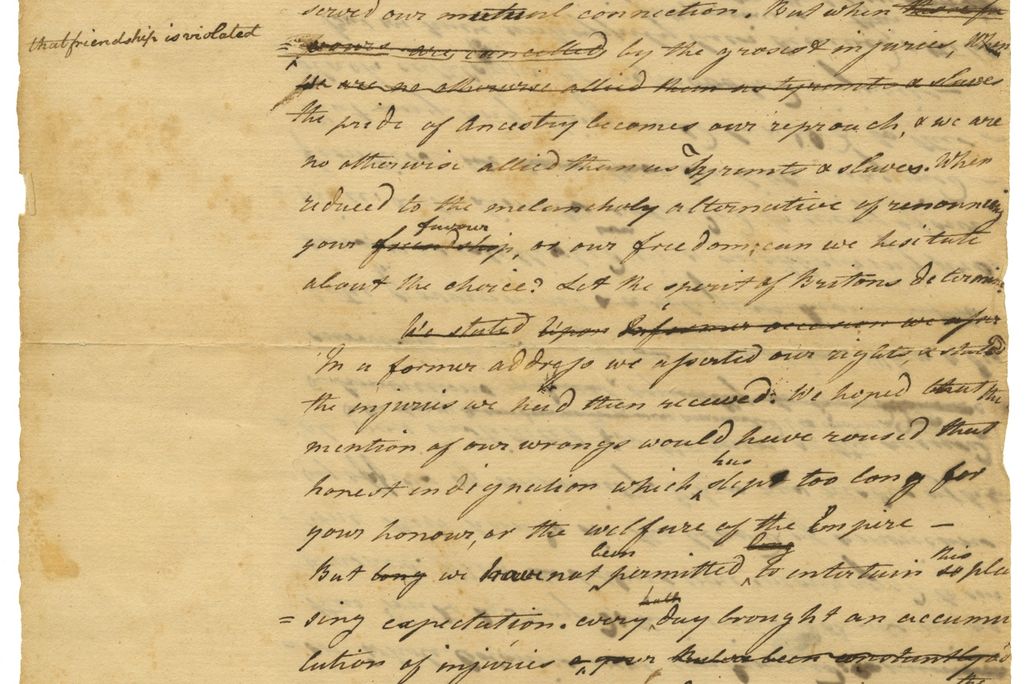 served our mutual connection. But when those fa
that friendship is violated
= vours are cancelled by the grossest injuries, when
We are no otherwise allied than as tyrants & slaves
the pride of Ancestry becomes our reproach, & we are
no otherwise allied than as Tyrants & slaves. When
reduced to the melancholy alternative of renouncing
favour
your friendship, or our freedom, can we hesitate
about the choice? Let the spirit of Britons determine.
We stated Upon In former occasion we asser
In a former address we asserted our rights & stated
the injuries we had then received. We hoped that the
mention of our wrongs would have roused that
has
honest indignation which slept too long for
your honour, or the welfare of the Empire —
been long this
But long we have not permitted to entertain so plea
hath
= sing expectation. every day brought an accumu
lation of injuries & your Rulers been constantly ad
the